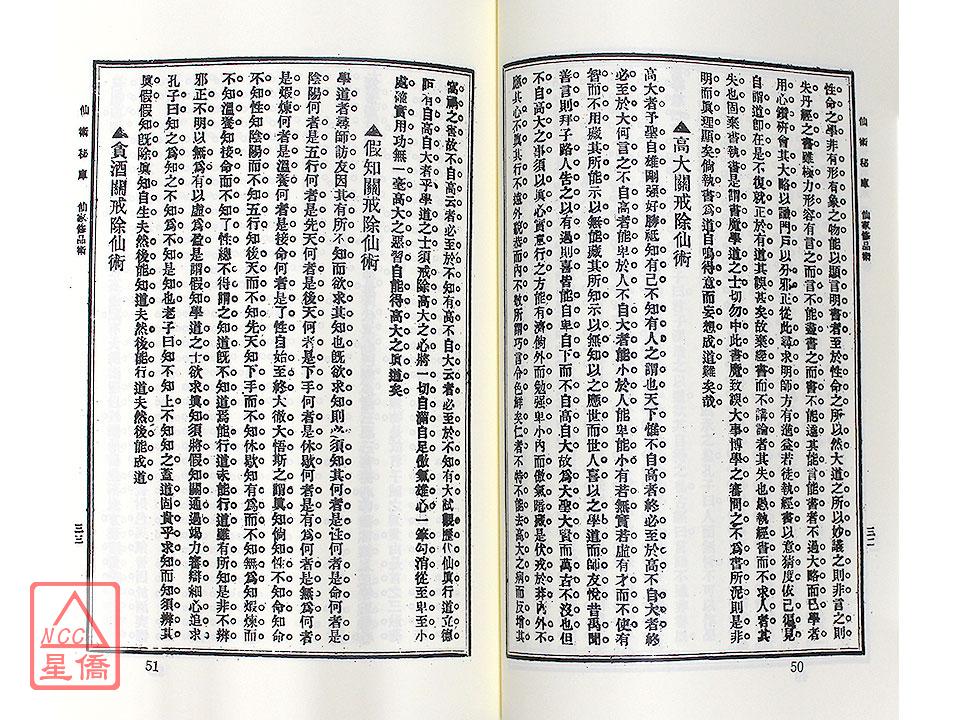 仙術秘庫 仙家修品術
三二
性命之學非有形有象之物能以顯言明書者至於性命之所以然大道之所以妙議之則非言之則
失丹經之書雖極力形容有言之而不能盡書之而不能達其能言能書者不過大略而已學者
用心鑽研會其大略以識門戶以分邪正從此尋求明師方有進益若徒執經書以意猜度依己偏見
自謂道即在是不復就正於有道其誤甚矣故棄經書而不講論者其失也愚執經書而不求人者其
失也固棄書執書是謂書魔學道之士切勿中此書魔致誤大事博學之審問之不為書所泥則是非
明而真理顯矣倘執書為道自鳴得意而妄想成道難矣哉
▲高大關戒除仙術
高大者予聖自雄剛強好勝祗知有己不知有人之謂也天下惟不自高者終必至於高不自大者終
必至於大何言之不自高者能卑於人不自大者能小於人能卑能小有若無實若虛有才而不使有
智而不用藏其所能示以無能藏其所知示以無知以之應世而世人喜以之學道而師友悅昔禹聞
善言則拜子路人告之以有過則喜皆能自卑自下而不自高自大故為大聖大賢而萬古不沒也但
不自高大之事須以真心實意行之方能有濟倘外而勉強卑小內而傲氣暗藏是伏戎於莽內外不
應其心不真其行不遠外親善而內不敬所謂巧言令色鮮矣仁者不特不能去高大之病而反增其
50
高大之害故不自高云者必至於不知有高不自大云者必至於不知有大試觀歷代仙真行道立德
詎有自高自大者乎學道之士須戒除高大之心將一切自滿自足傲氣雄心一筆勾消從至卑至小
處濬實用功無一毫高大之惡習自能得高大之真道矣
▲假知關戒除仙術
學道者尋師訪友因其有所不知而欲求其知也既欲求知則必須知其何者是性何者是命何者是
陰陽何者是五行何者是先天何者是後天何者是下手何者是休歇何者是有為何者是無為何者
是煅煉何者是溫養何者是接命何者是了性自始至終大徹大悟斯之謂真知倘知性不知命知命
不知性知陰陽而不知五行知後天而不知先天知下手而不知休歇知有為而不知無為知煅煉而
不知溫養知接命而不知了性總不得謂之知道既不知道焉能行道未能行道雖有所知是非不辨
邪正不明以無為有以虛為盈是謂假知學道之士欲求真知須將假知關通過竭力審辯細心追求
孔子曰知之為知之不知為不知是知也老子曰知不知上不知知之蓋道固貴乎求知而知須辨其
真假假知既除真知自生夫然後能知道夫然後能行道夫然後能成道
▲貪酒關戒除仙術
仙術秘庫 仙家修品術
三三
51
NCC
星僑